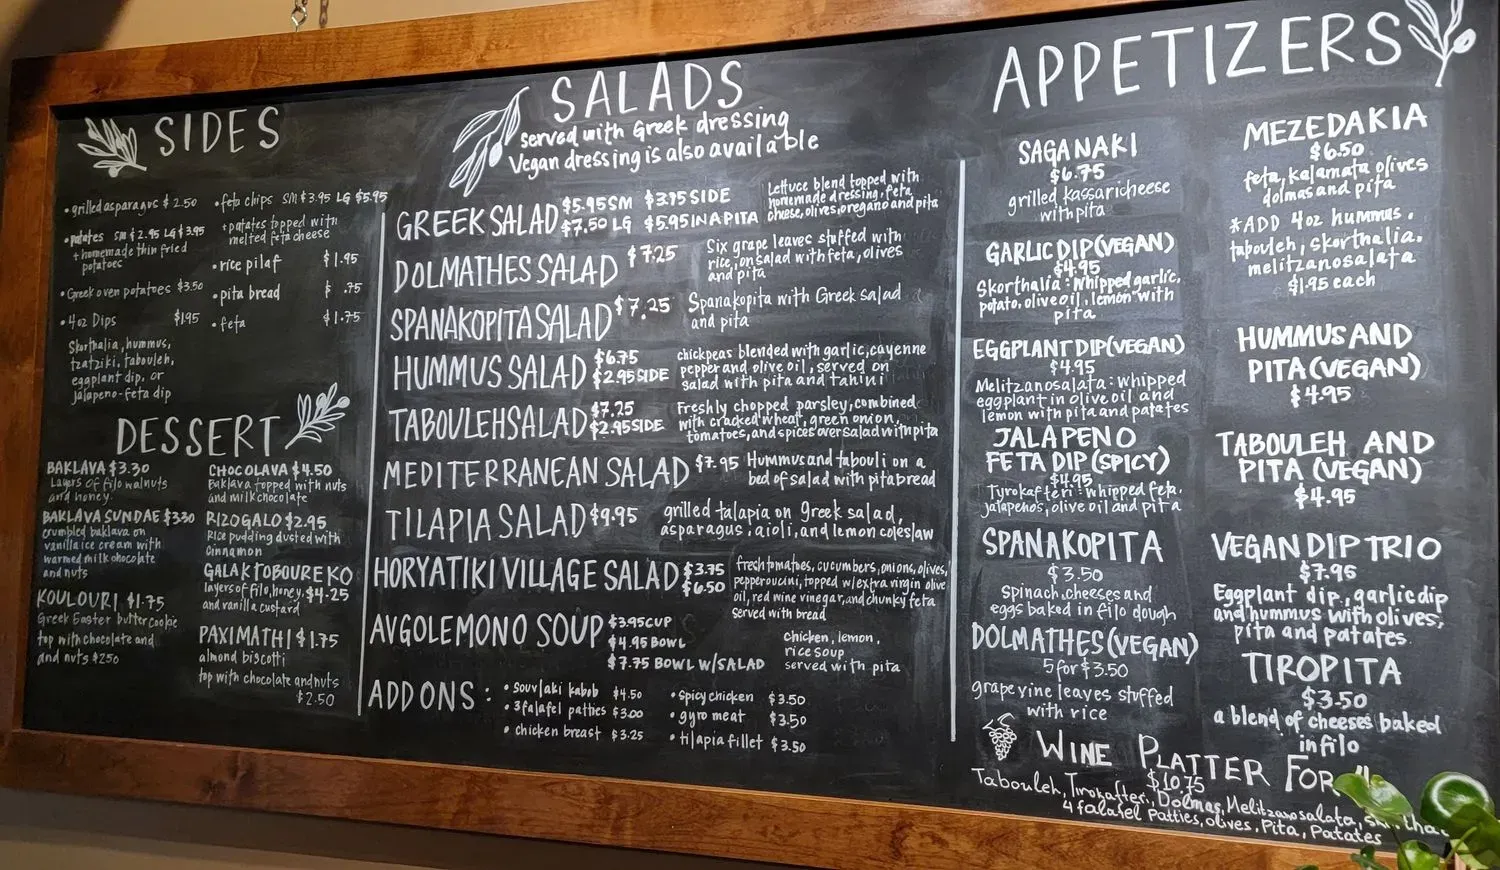 SIDES
• grilled asparagus $2.50
• patates SM $2.95 LG $3.95
+ homemade thin fried
potatoes
• Greek oven potatoes $3.50
• 4oz Dips $1.95
Skorthalia, hummus,
tzatziki, tabouleh,
eggplant dip, or
jalapeno-feta dip
• feta chips SM $3.95 LG $5.95
+patates topped with
melted feta cheese
• rice pilaf $1.95
• pita bread $ .75
• feta $1.75
DESSERT
BAKLAVA $3.30
Layers of filo walnuts
and honey.
BAKLAVA SUNDAE $3.30
crumbled baklava on
vanilla ice cream with
warmed milk chocolate
and nuts
KOULOURI $1.75
Greek Easter butter cookie
top with chocolate and
and nuts $2.50
CHOCOLAVA $4.50
Baklava topped with nuts
and milk chocolate
RIZOGALO $2.95
Rice pudding dusted with
cinnamon
GALAKTOBOUREKO
layers of filo, honey, $4.25
and vanilla custard
PAXIMATHI $1.75
almond biscotti
top with chocolate and nuts
$2.50
SALADS
served with Greek dressing
Vegan dressing is also available
GREEK SALAD $5.95 SM $3.75 SIDE
$7.50 LG $5.95 IN A PITA
Lettuce blend topped with
homemade dressing, feta
cheese, olives, oregano and pita
DOLMATHES SALAD $7.25
Six grape leaves stuffed with
rice, on salad with feta, olives
and pita
SPANAKOPITA SALAD $7.25
Spanakopita with Greek salad
and pita
HUMMUS SALAD $6.75
$2.95 SIDE
chickpeas blended with garlic, cayenne
pepper and olive oil, served on
salad with pita and tahini
TABOULEH SALAD $7.25
$2.95 SIDE
Freshly chopped parsley, combined
with cracked wheat, green onion,
tomatoes, and spices over salad with pita
MEDITERRANEAN SALAD $7.95
Hummus and tabouli on a
bed of salad with pita bread
TILAPIA SALAD $9.95
grilled talapia on Greek salad,
asparagus, aioli, and lemon coleslaw
HORYATIKI VILLAGE SALAD $3.75
$6.50
fresh tomatoes, cucumbers, onions, olives,
pepperoucini, topped w/extra virgin olive
oil, red wine vinegar, and chunky feta
served with bread
AVGOLEMONO SOUP $3.95 CUP
$4.95 BOWL
$7.75 BOWL W/SALAD
chicken, lemon,
rice soup
served with pita
ADD ONS:
• souvlaki kabob $4.50
• 3 falafel patties $3.00
• chicken breast $3.25
• spicy chicken $3.50
• gyro meat $3.50
• tilapia fillet $3.50
APPETIZERS
SAGANAKI
$6.75
grilled kassari cheese
with pita
GARLIC DIP (VEGAN)
$4.95
Skorthalia: whipped garlic,
potato, olive oil, lemon with
pita
EGGPLANT DIP (VEGAN)
$4.95
Melitzanosalata: whipped
eggplant in olive oil and
lemon with pita and patates
JALAPENO
FETA DIP (SPICY)
$4.95
Tyrokafteri: whipped feta,
jalapenos, olive oil and pita
SPANAKOPITA
$3.50
Spinach, cheeses and
eggs baked in filo dough
DOLMATHES (VEGAN)
5 for $3.50
grape vine leaves stuffed
with rice
MEZEDAKIA
$6.50
feta, kalamata olives
dolmas and pita
*ADD 4oz hummus,
tabouleh, skorthalia,
melitzanosalata
$1.95 each
HUMMUS AND
PITA (VEGAN)
$4.95
TABOULEH AND
PITA (VEGAN)
$4.95
VEGAN DIP TRIO
$7.95
Eggplant dip, garlic dip
and hummus with olives,
pita and patates.
TIROPITA
$3.50
a blend of cheeses baked
in filo
WINE PLATTER FOR
$10.75
Tabouleh, Tirokafteri, Dolmas, Melitzanosalata,
4 falafel Patties, olives, Pita, Patates